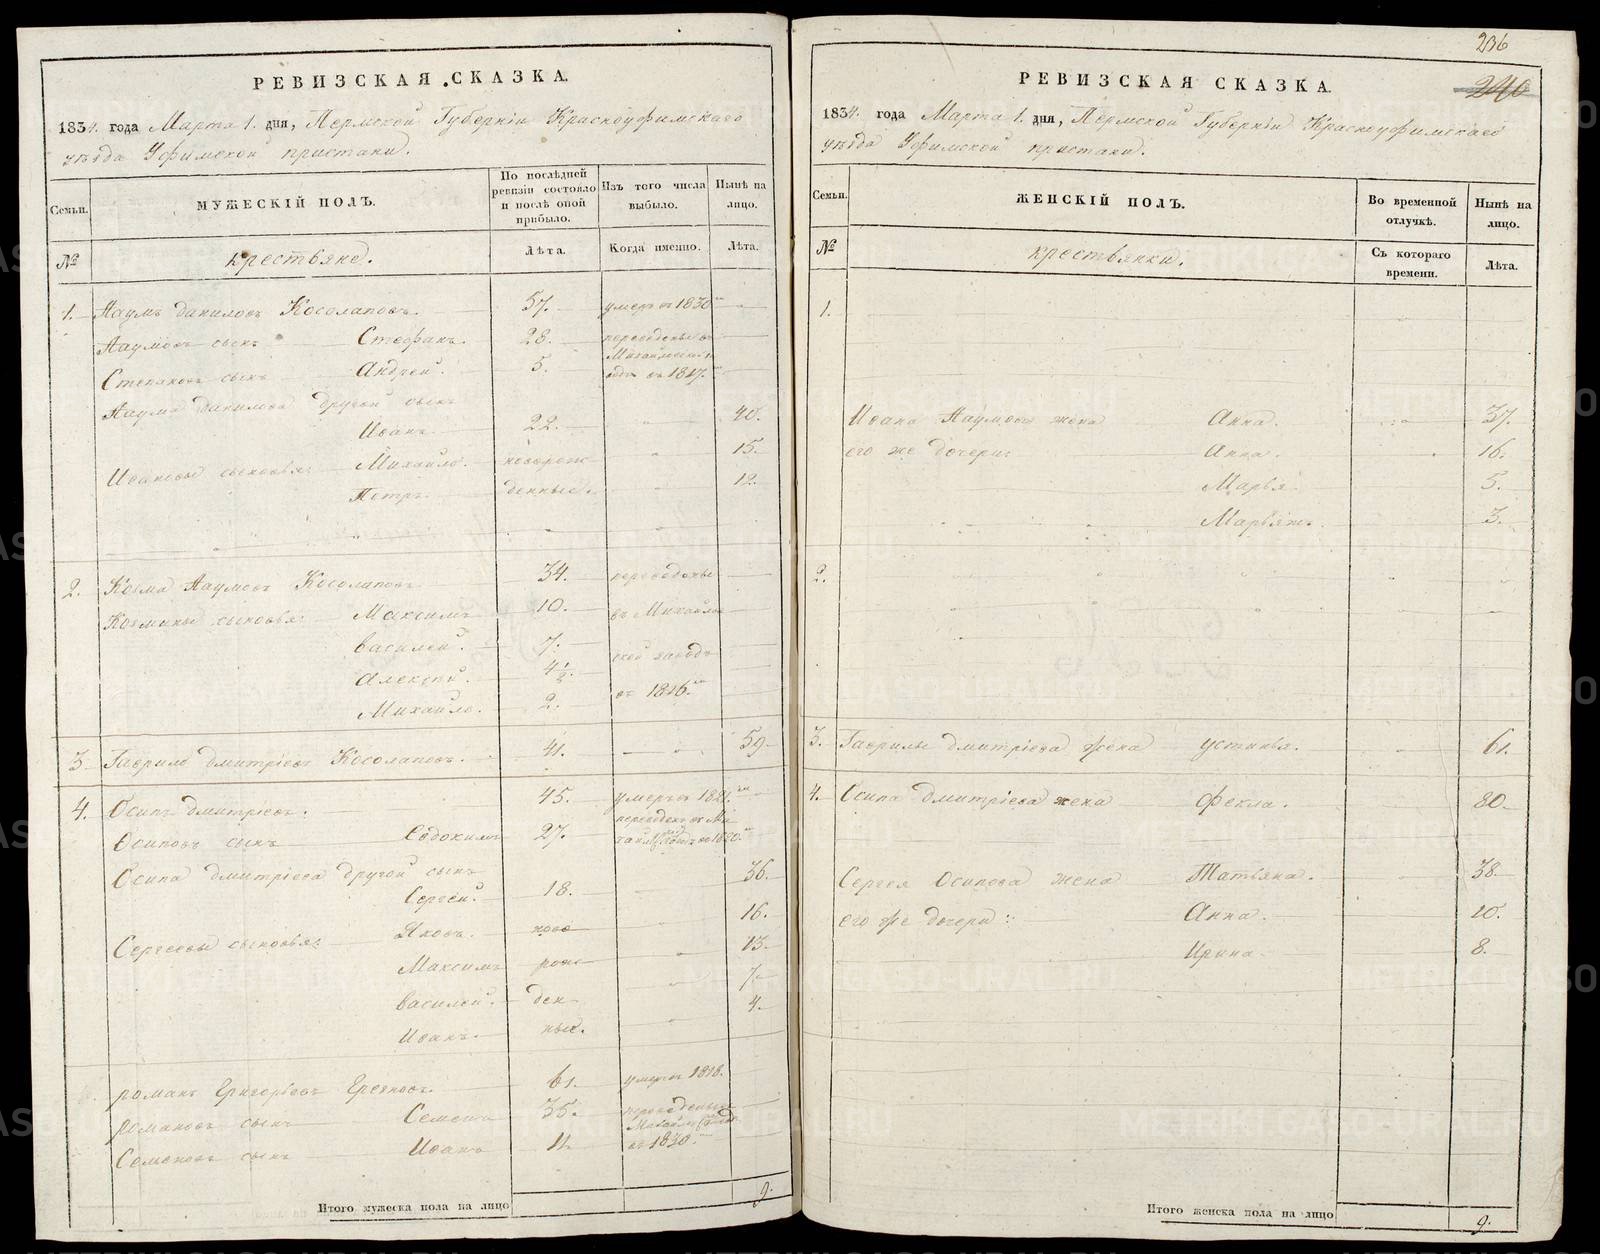 РЕВИЗСКАЯ СКАЗКА.
1834. года Марта 1. дня, Пермской Губернiи Красноуфимскаго
уѣзда Уфимской пристани.
Семьи.
МУЖЕСКIЙ ПОЛЪ.
По послѣдней ревизiи состояло и послѣ оной прибыло.
Изъ того числа выбыло.
Нынѣ на лицо.
№
крестьяне.
Лѣта.
Когда именно.
Лѣта.
1. Наумъ Даниловъ Косолаповъ. 57. умеръ въ 1830
Наумовъ сынъ Стефанъ. 28. переведены въ
Степановъ сынъ Андрей. 5. въ 1817.
Наума Данилова другой сынъ
Иванъ 22. 40.
Ивановы сыновья: Михайло. новорож 15.
Петръ денные. 12.
2. Козма Наумовъ Косолаповъ 34. переведены
Козмины сыновья: Максимъ 10. въ Михайлов
Василей. 7. ской заводъ
Алексѣй. 4½. въ 1816.
Михайло. 2.
3 Гаврило Дмитрiевъ Косолаповъ. 41. 59
4. Осипъ Дмитрiевъ. 45. умеръ въ 1821.
Осиповъ сынъ Евдокимъ 27. переведенъ въ Ми
въ 1820.
Осипа Дмитрiева другой сынъ
Сергѣй. 18. 36.
Сергеевы сыновья: Яковъ. ново 16.
Максимъ рож 13.
Василей. ден 7.
Иванъ. ные. 4.
Романъ Григорьевъ 61. умеръ въ 1818.
Романовъ сынъ Семенъ 35. переведены
Семеновъ сынъ Иванъ 11. въ 1830.
Итого мужеска пола на лицо 9.
236
240
РЕВИЗСКАЯ СКАЗКА.
1834. года Марта 1. дня, Пермской Губернiи Красноуфимскаго
уѣзда Уфимской пристани.
Семьи.
ЖЕНСКIЙ ПОЛЪ.
Во временной отлучкѣ.
Нынѣ на лицо.
№
крестьянки.
Съ котораго времени.
Лѣта.
1.
Ивана Наумова жена Анна. 37.
его же дочери: Анна. 16.
Марья. 5.
3.
2.
3. Гаврилы Дмитрiева жена Устинья. 61.
4. Осипа Дмитрiева жена Фекла. 80
Сергея Осипова жена Татьяна. 38
его же дочери: Анна. 10.
Ирина 8.
Итого женска пола на лицо 9.
METRIKI.GASO-URAL.RU